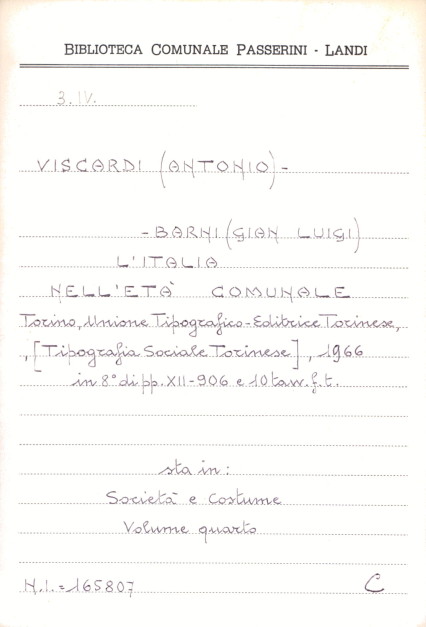 BIBLIOTECA COMUNALE PASSERINI - LANDI
3.IV.
VISCARDI (ANTONIO) -
- BARNI (GIAN LUIGI)
L'ITALIA
NELL'ETÀ COMUNALE
Torino, Unione Tipografico-Editrice Torinese,
, [Tipografia Sociale Torinese], 1966
in 8° di pp. XII-906 e 10 tavv. f. t.
sta in:
Società e Costume
Volume quarto
N.I. = 165807
C